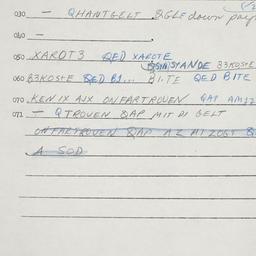 030 — QHANTGELT &GLE down pay
040 —
050 XAROT3 QED XAROTE
BSINSTANDE B3KOSTE
060 B3KOSTE QED BI... BI.TE QED BITE
070 KEN IX AIX ONFARTROUEN QAP AMIZ
071 — QTROUEN QAP MIT DI GELT
ONFARTROUEN QAP AZ MIZOGT &
A SOD